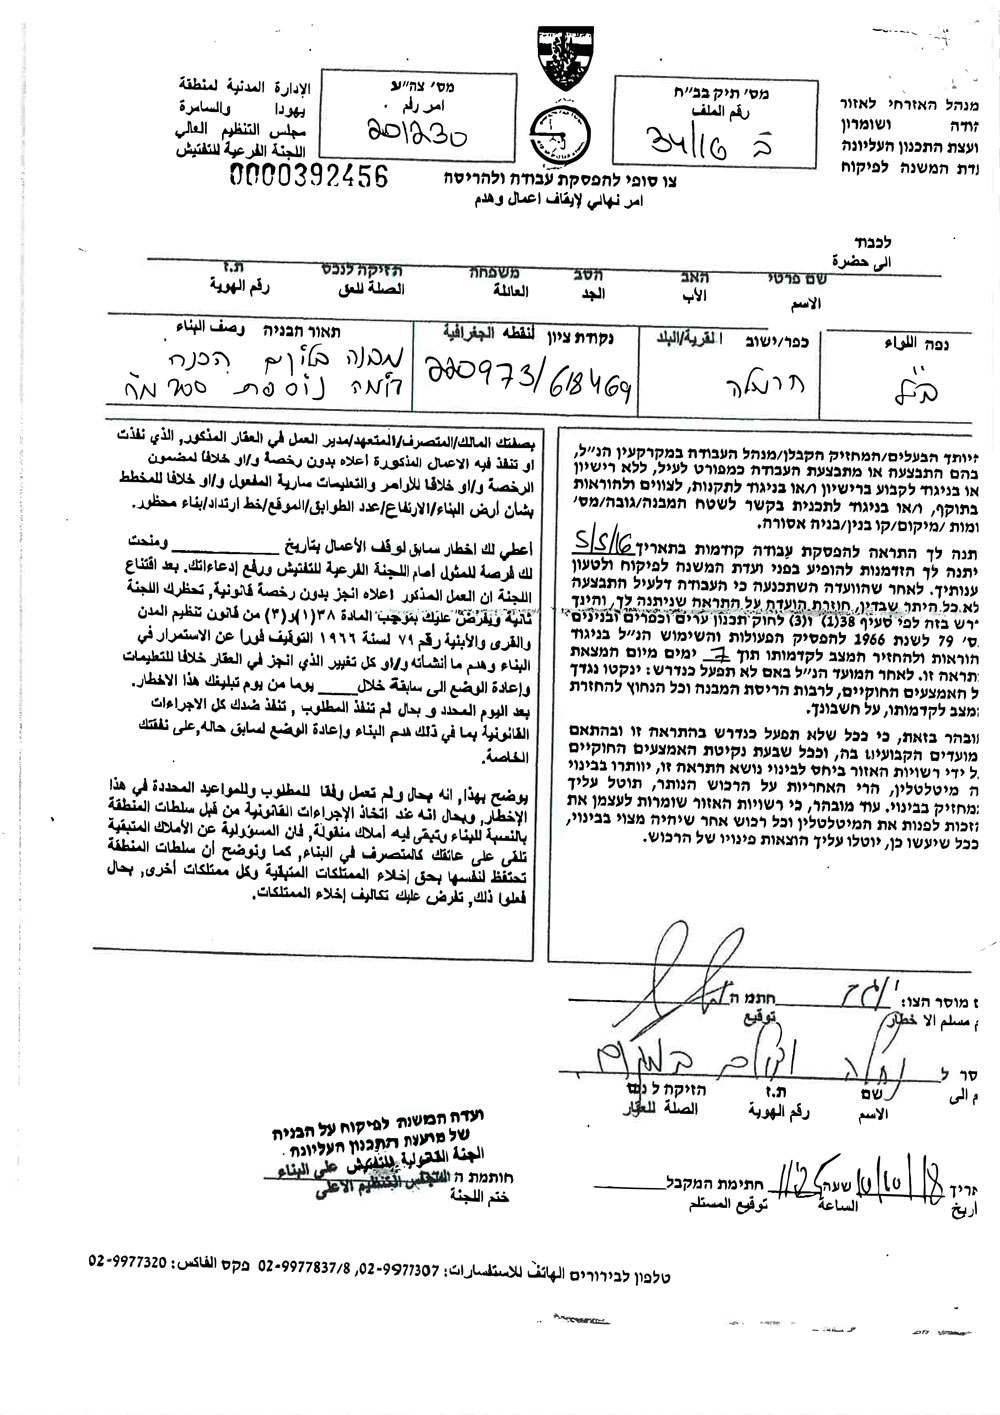 מנהל האזרחי לאזור
ושומרון
ועצת התכנון העליונה
המשנה לפיקוח
מס' תיק בב"ח
رقم الملف
ב 34/16
מס' צה"ע
امر رقم
201230
الإدارة المدنية لمنطقة
يهودا والسامرة
مجلس التنظيم العالي
اللجنة الفرعية للتفتيش
0000392456
צו סופי להפסקת עבודה ולהריסה
امر نهائي لإيقاف اعمال وهدم
לכבוד
الى حضرة
שם פרטי האב הסב משפחה הזיקה לנכס ת.ז
الاسم الأب الجد العائلة الصلة للعق رقم الهوية
נפה اللواء
כפר/ישוב القرية/البلد
חרמלה
נקודת ציון لنقطه الجغرافية
220973/618469
תאור הבניה وصف البناء
מבנה בלוקים הכנה
קומה נוספת
זיותך הבעלים/המחזיק הקבלן/מנהל העבודה במקרקעין הנ"ל,
בהם התבצעה או מתבצעת העבודה כמפורט לעיל, ללא רישיון
או בניגוד לקבוע ברישיון ו/או בניגוד לתקנות, לצווים ולהוראות
בתוקף, ו/או בניגוד לתכנית בקשר לשטח המבנה/גובה/מס'
ומות /מיקום/קו בנין/בניה אסורה.
תנה לך התראה להפסקת עבודה קודמות בתאריך 5/5/16
יתנה לך הזדמנות להופיע בפני ועדת המשנה לפיקוח ולטעון
ענותיך. לאחר שהוועדה השתכנעה כי העבודה דלעיל התבצעה
לא כל היתר שבדין, חוזרת הועדה על התראה שניתנה לך, והינך
רש בזה לפי סעיף 38(1) ו(3) לחוק תכנון ערים וכפרים ובנינים
ס' 79 לשנת 1966 להפסיק הפעולות והשימוש הנ"ל בניגוד
הוראות ולהחזיר המצב לקדמותו תוך 7 ימים מיום המצאת
תראה זו. לאחר המועד הנ"ל באם לא תפעל כנדרש: ינקטו נגדך
ל האמצעים החוקיים, לרבות הריסת המבנה וכל הנחוץ להחזרת
מצב לקדמותו, על חשבונך.
מובהר בזאת, כי ככל שלא תפעל כנדרש בהתראה זו ובהתאם
מועדים הקבועים בה, וככל שבעת נקיטת האמצעים החוקיים
ל ידי רשויות האזור ביחס לבינוי נושא התראה זו, יוותרו בבינוי
ה מיטלטלין, הרי האחריות על הרכוש הנותר, תוטל עליך
מחזיק בבינוי. עוד מובהר, כי רשויות האזור שומרות לעצמן את
זכות לפנות את המיטלטלין וכל רכוש אחר שיהיה מצוי בבינוי,
ככל שיעשו כן, יוטלו עליך הוצאות פינויו של הרכוש.
بصفتك المالك/المتصرف/المتعهد/مدير العمل في العقار المذكور, الذي نفذت
او تنفذ فيه الاعمال المذكورة أعلاه بدون رخصة و/او خلافا لمضمون
الرخصة و/او خلافا للأوامر والتعليمات سارية المفعول و/او خلافا للمخطط
بشأن أرض البناء/الارتفاع/عدد الطوابق/الموقع/خط ارتداد/بناء محظور.
أعطي لك اخطار سابق لوقف الأعمال بتاريخ ____________ ومنحت
لك فرصة للمثول أمام اللجنة الفرعية للتفتيش ورفع إدعاءاتك. بعد اقتناع
اللجنة ان العمل المذكور اعلاه انجز بدون رخصة قانونية, تحظرك اللجنة
ثانية ويفرض عليك بتوجب المادة ٣٨(١)و(٣) من قانون تنظيم المدن
والقرى والأبنية رقم ٧٩ لسنة ١٩٦٦ التوقيف فورا عن الاستمرار في
البناء وهدم ما انشأته و/او كل تغيير الذي انجز في العقار خلافا للتعليمات
وإعادة الوضع الى سابقة خلال_____ يوما من يوم تبليغك هذا الاخطار.
بعد اليوم المحدد و بحال لم تنفذ المطلوب , تنفذ ضدك كل الاجراءات
القانونية بما في ذلك هدم البناء وإعادة الوضع لسابق حاله, على نفقتك
الخاصة.
يوضح بهذا, انه بحال ولم تعمل وفقا للمطلوب وللمواعيد المحددة في هذا
الإخطار, وبحال انه عند اتخاذ الإجراءات القانونية من قبل سلطات المنطقة
بالنسبة للبناء وتبقى فيه أملاك منقولة, فان المسؤولية عن الأملاك المتبقية
تلقى على عاتقك كالمتصرف في البناء, كما ونوضح أن سلطات المنطقة
تحتفظ لنفسها بحق إخلاء الممتلكات المتبقية وكل ممتلكات أخرى, بحال
فعلوا ذلك, تفرض عليك تكاليف إخلاء الممتلكات.
מוסר הצו: חתמ ה
مسلم الا خطار توقيع
סר ל במקום
م الى
שם ת.ז הזיקה ל נכס
الاسم رقم الهوية الصلة للعقار
ועדה המשנה לפיקוח על הבניה
של מועצת התכנון העליונה
خاتم
חותמת ה
ختم اللجنة
אריך 10/10/18 שעה 11:25 חתימת המקבל
تاريخ الساعة توقيع المستلم
טלפון לבירורים الهاتف للاستفسارات: 02-9977307, 02-9977837/8 פקס الفاكس: 02-9977320